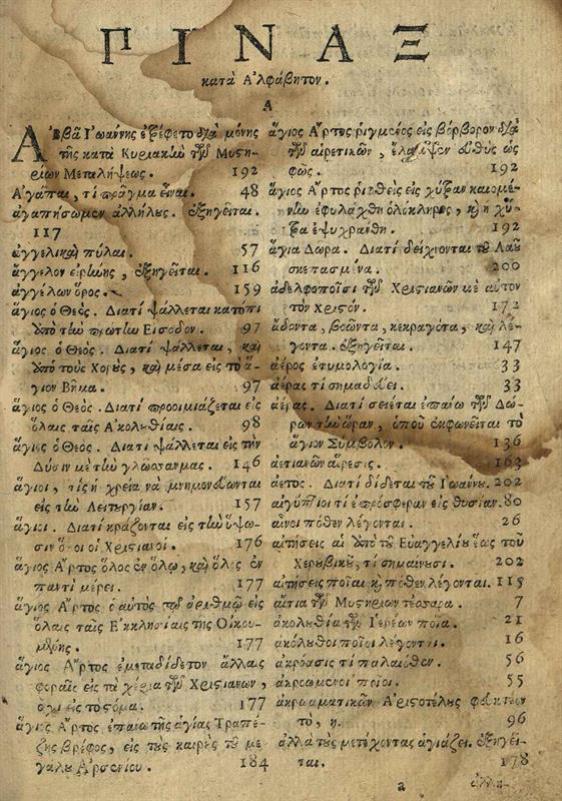 ΠΙΝΑΞ
κατὰ Ἀλφάβητον.
Α
Ἀββᾶ Ἰωάννης ἐτρέφετο διὰ μόνης
τῆς κατὰ Κυριακὴν τῶν Μυστη-
ρίων Μεταλήψεως. 192
Ἀγάπαι, τί πρᾶγμα εἶναι. 48
ἀγαπήσωμεν ἀλλήλους. ἐξηγεῖται.
117
ἀγγελικαὶ πύλαι. 57
ἄγγελον εἰρήνης, ἐξηγεῖται. 116
ἀγγέλων ὄρος. 159
ἅγιος ὁ Θεός. Διατί ψάλλεται κατόπι
ὑπὸ τὴν πρώτην Εἴσοδον. 97
ἅγιος ὁ Θεός. Διατί ψάλλεται, καὶ
ὑπὸ τοὺς Χοροὺς, καὶ μέσα εἰς τὸ ἅ-
γιον Βῆμα. 97
ἅγιος ὁ Θεός. Διατί προοιμιάζεται εἰς
ὅλαις ταῖς Ἀκολουθίαις. 98
ἅγιος ὁ Θεός. Διατί ψάλλεται εἰς τὴν
Δύσιν μὲ τὴν γλῶσσαν μας. 146
ἅγιοι, τίς ἡ χρεία νὰ μνημονεύωνται
εἰς τὴν Λειτουργίαν. 157
ἅγιοι. Διατί κράζονται εἰς τὴν ὕψω-
σιν ὅλοι οἱ Χριστιανοί. 176
ἅγιος Ἄρτος ὅλος ἐν ὅλῳ, καὶ ὅλος ἐν
παντὶ μέρει. 177
ἅγιος Ἄρτος ὁ αὐτὸς τῷ ἀριθμῷ εἰς
ὅλαις ταῖς Ἐκκλησίαις τῆς Οἰκου-
μένης. 177
ἅγιος Ἄρτος ἐμεταδίδετον ἄλλαις
φοραῖς εἰς τὰ χέρια τῶν Χριστιανῶν,
ὄχι εἰς τὸ στόμα. 177
ἅγιος Ἄρτος ἐπάνω τῆς ἁγίας Τραπέ-
ζης βρέφος, εἰς τοὺς καιροὺς τοῦ με-
γάλου Ἀρσενίου. 184
ἅγιος Ἄρτος ῥιγμένος εἰς βόρβορον διὰ
τῶν αἱρετικῶν, ἔλαμψεν εὐθὺς ὡς
φῶς. 192
ἅγιος Ἄρτος ῥιχθεὶς εἰς χύτραν καιομέ-
νην ἐφυλάχθη ὁλόκληρος, καὶ ἡ χύ-
τρα ἐψυχράνθη. 192
ἅγια Δῶρα. Διατί δείχνονται τοῦ Λαοῦ
σκεπασμένα. 200
ἀδελφοποιΐσι τῶν Χριστιανῶν μὲ αὐτὸν
τὸν Χριστόν. 172
ᾄδοντα, βοῶντα, κεκραγότα, καὶ λέ-
γοντα. ἐξηγεῖται. 147
ἀέρος ἐτυμολογία. 33
ἀέρας τί σημαδεύει. 33
ἀέρας. Διατί σείεται ἐπάνω τῶν Δώ-
ρων τὴν ὥραν, ὁποῦ ἐκφωνεῖται τὸ
ἅγιον Σύμβολον. 136
ἀετιανῶν αἵρεσις. 163
ἀετος. Διατί δίδεται τοῦ Ἰωάννου. 202
αἰγύπτιοι τί ἐπρόσφεραν εἰς θυσίαν. 80
αἶνοι πόθεν λέγονται. 26
αἰτήσεις αἱ ἀπὸ τοῦ Εὐαγγελίου ἕως τοῦ
Χερουβικοῦ, τί σημαίνουσι. 202
αἰτήσεις ποῖαι καὶ πόθεν λέγονται. 115
αἴτια τῶν Μυστηρίων τέσσαρα. 7
ἀκολουθία τῶν Ἱερέων ποία. 21
ἀκόλουθοι ποῖοι λέγονται. 16
ἀκρόασις τί παλαιόθεν. 56
ἀκροώμενοι ποῖοι. 55
ἀκροαματικῶν Ἀριστοτέλους
τὸ, η. 96
ἀλλὰ τοὺς μετέχοντας ἁγιάζει. ἐξηγεῖ-
ται. 178
a